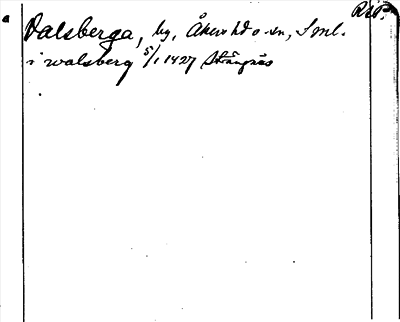 RAP.
Valsberga, by, Åkers hd o sn, Sml.
i walsberg 5/1 1427 Strängnäs